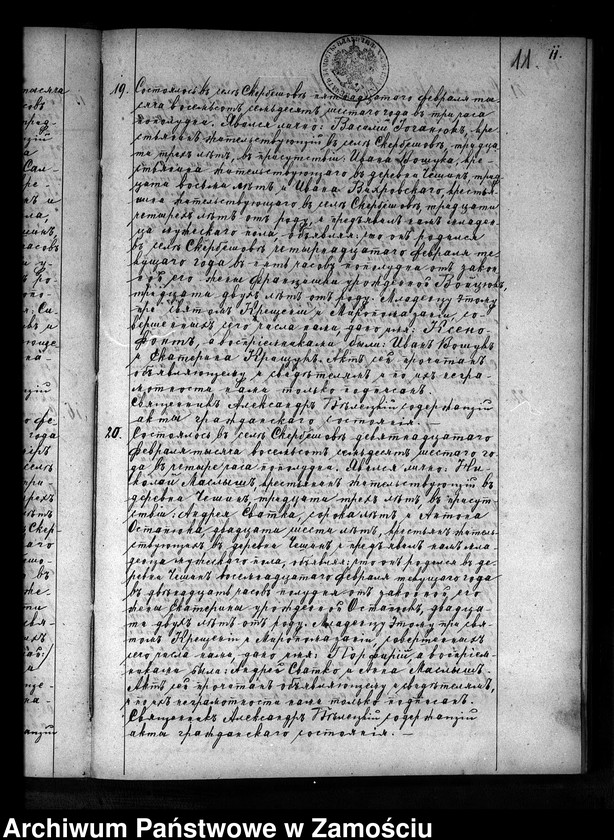 11.
11.
19.
Состоялось въ селѣ Скербешовъ пятнадцатаго февраля ты-
сяча восемьсотъ семьдесятъ шестаго года въ три часа
пополудни. Явился лично: Василій кре-
стьянинъ жительствующій въ селѣ Скербешовъ, тридца-
ти трехъ лѣтъ, въ присутствіи: Ивана Вошука, кре-
стьянина жительствующаго въ деревнѣ Чешинъ, трид-
цати восьми лѣтъ и Ивана крестья-
нина жительствующаго въ селѣ Скербешовъ, тридцати
четырехъ лѣтъ отъ роду, и предъявилъ намъ младен-
ца мужескаго пола объявляя: что онъ родился
въ селѣ Скербешовъ четырнадцатаго февраля те-
кущаго года въ пять часовъ пополудни отъ закон-
ной его жены Францишки урожденной
тридцати двухъ лѣтъ отъ роду. Младенцу этому
при святомъ Крещеніи и Миропомазаніи, со-
вершенныхъ сего числа нами дано имя: Ксено-
фонтъ, а воспріемниками были: Иванъ Вошукъ
и Екатерина Актъ сей прочитанъ
объявляющему и свидѣтелямъ и по ихъ негра-
мотности нами только подписанъ.
Священникъ Александръ Бѣлецкій содержащій
акты гражданскаго состоянія. —
20.
Состоялось въ селѣ Скербешовъ девятнадцатаго
февраля тысяча восемьсотъ семьдесятъ шестаго го-
да въ четыре часа пополудни. Явился лично: Ни-
колай Маслышъ крестьянинъ жительствующій въ
деревнѣ Чешинъ, тридцати трехъ лѣтъ въ присут-
ствіи: Андрея Сватка, сорока лѣтъ и Антона
Остапюка двадцати шести лѣтъ, крестьянъ житель-
ствующихъ въ деревнѣ Чешинъ и предъявилъ намъ мла-
денца мужескаго пола, объявляя: что онъ родился въ де-
ревнѣ Чешинъ восемнадцатаго февраля текущаго года
въ двѣнадцать часовъ полудня отъ законной его
жены Екатерины урожденной Остапюкъ, двадца-
ти двухъ лѣтъ отъ роду. Младенцу этому при свя-
томъ Крещеніи и Миропомазаніи, совершенныхъ
сего числа нами, дано имя: Порфирій а воспріем-
никами были: Андрей Сватко и Анна Маслышъ.
Актъ сей прочитанъ объявляющему и свидѣтелямъ,
и по ихъ неграмотности нами только подписанъ.
Священникъ Александръ Бѣлецкій содержащій
акты гражданскаго состоянія. —
Archiwum Państwowe w Zamościu